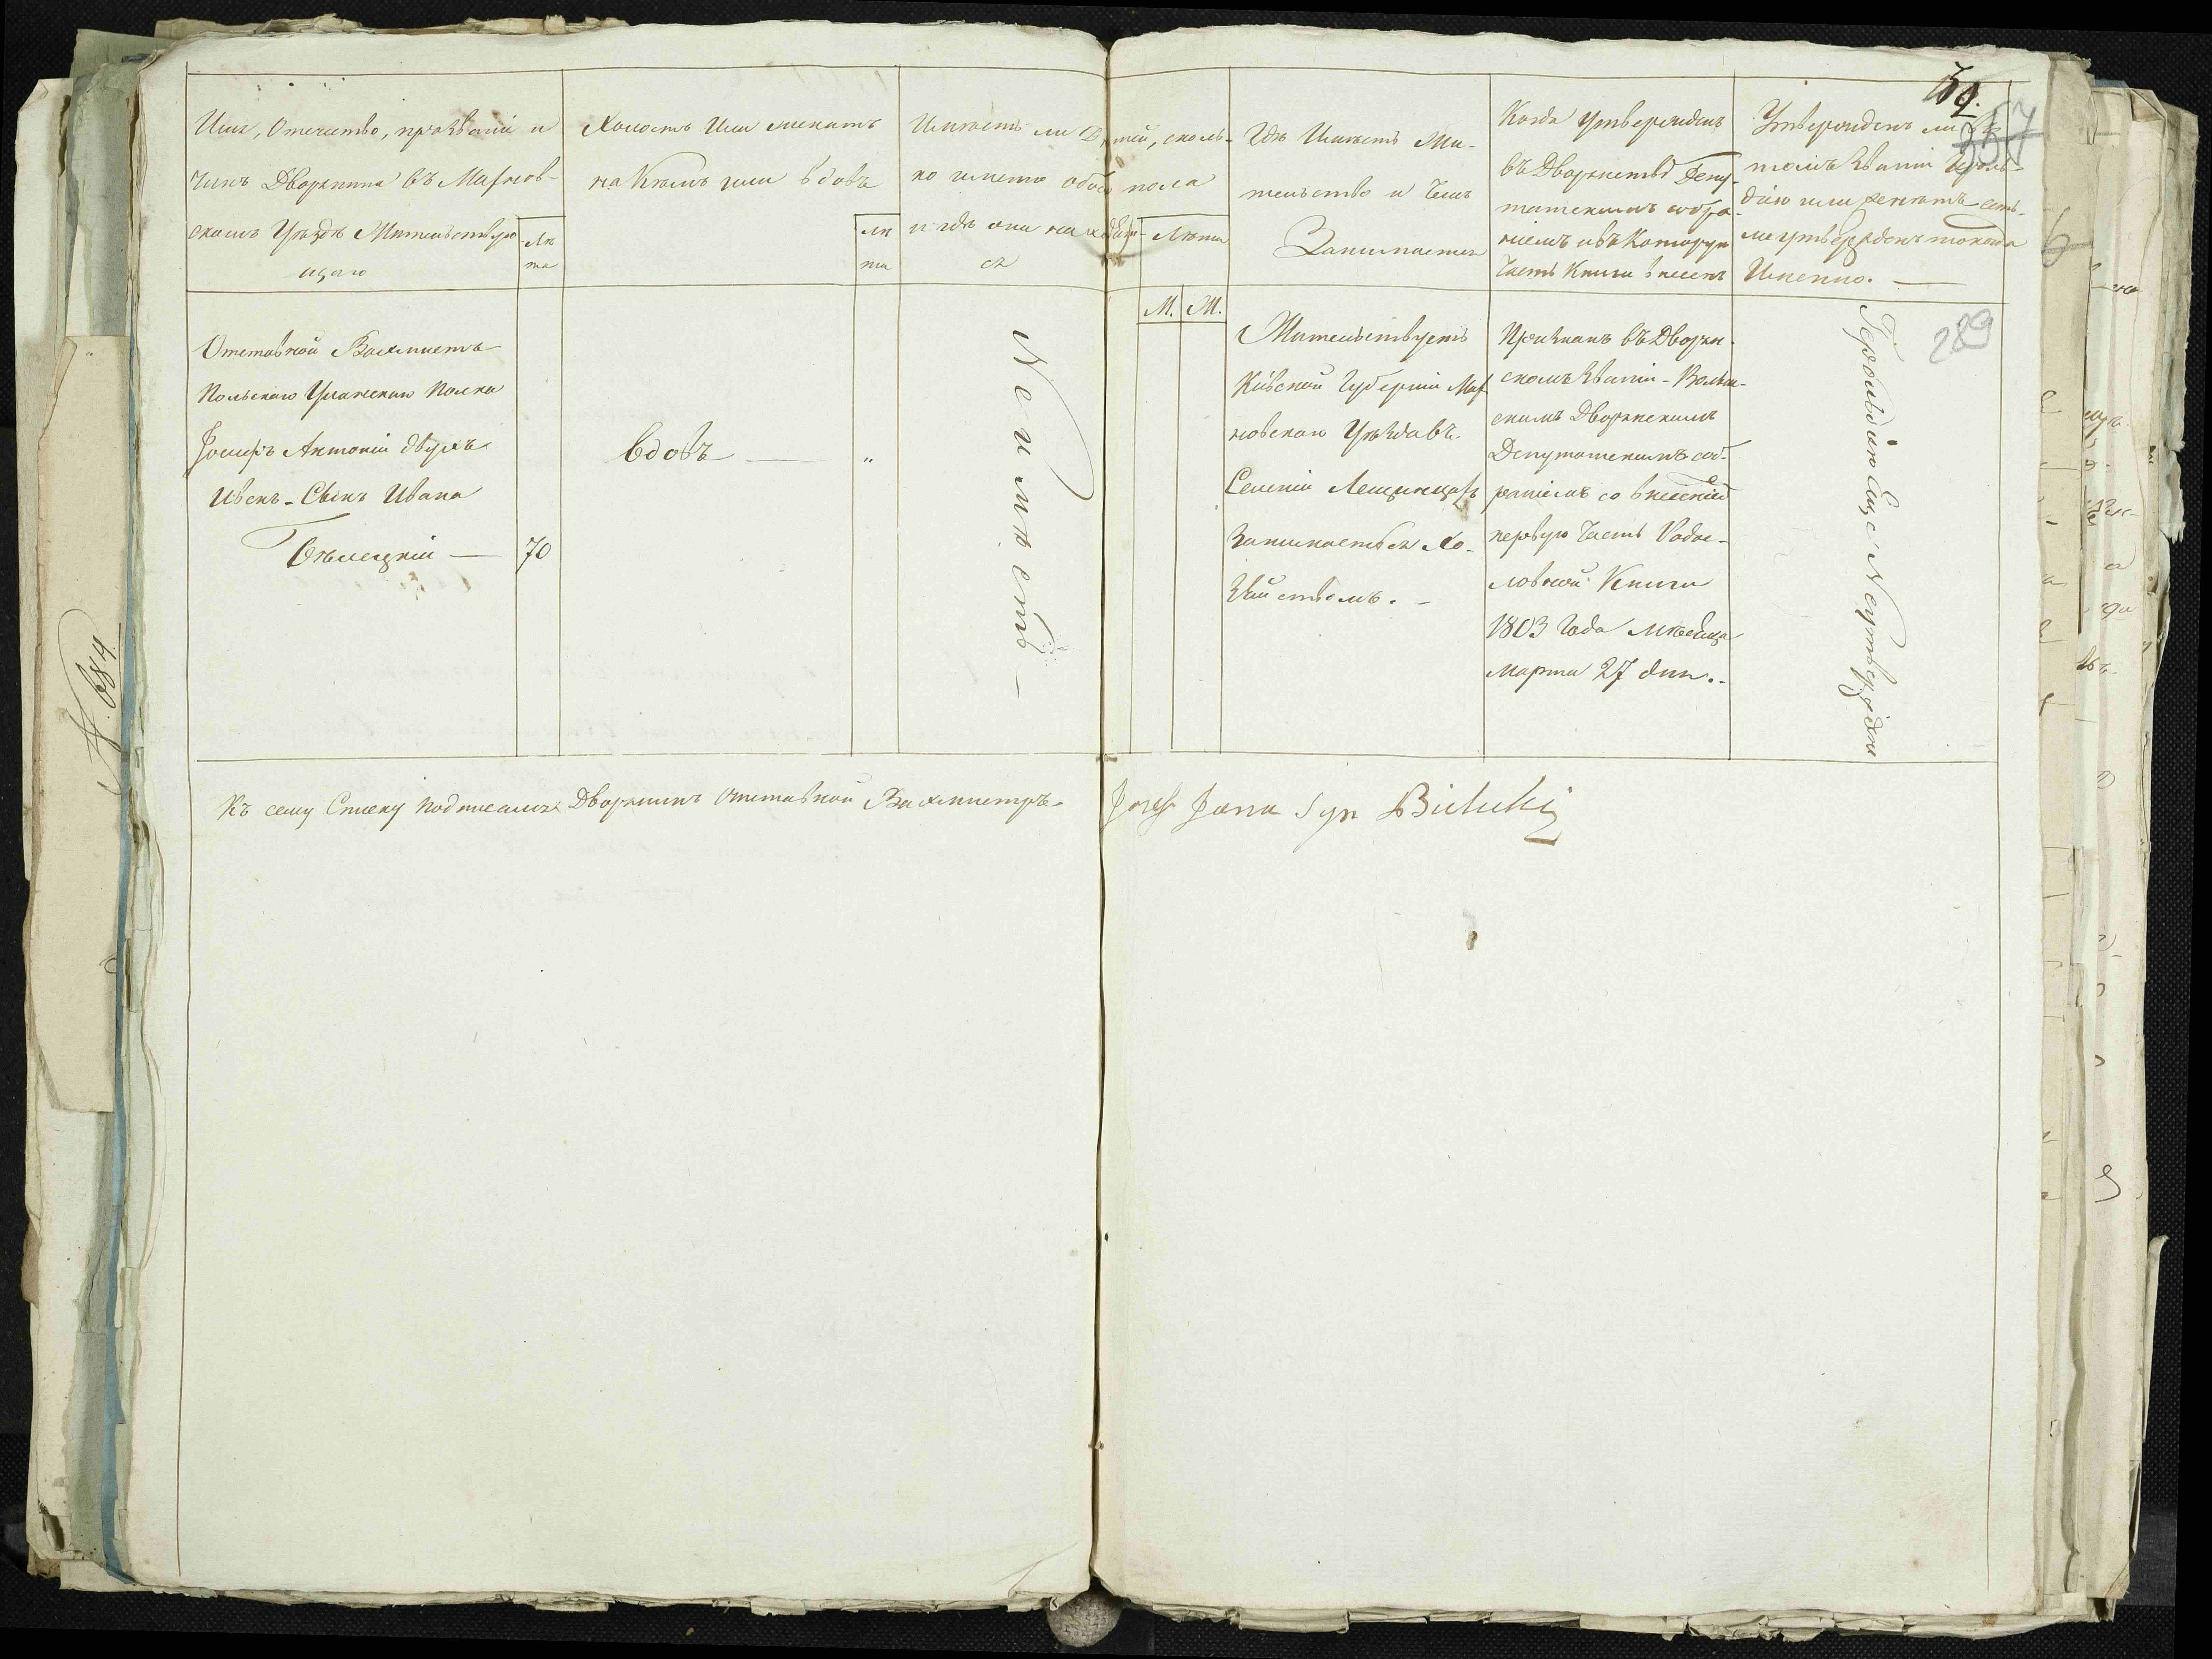 Имя, Отчество, прозваніе и
Чинъ Дворянина въ Махнов-
скомъ Уѣздѣ Жительствую-
щаго
Лѣ
та
Холостъ Или женатъ
на комъ или вдовъ
лѣ
та
Имѣетъ ли Дѣтей, сколь-
ко имено обоего пола
и гдѣ они находят-
ся
Лѣта
М. Ж.
Гдѣ Имѣетъ Жи-
тельство и Чемъ
Занимается
Когда Утвержденъ
въ Дворянствѣ Депу-
татскимъ собра-
ніемъ и въ Которую
Часть Книги внесенъ
Утвержденъ ли въ
томъ званіи Героль-
діею или
ли утвержденъ то когда
Именно. —
72.
357
289
Отставной Вахмистръ
Польскаго Уланскаго Полка
Іосифъ Антоній двухъ
Имѣнъ - Сынъ Ивана
Бѣлецкій — 70
вдовъ — „
Неимѣетъ —
Жительствуетъ
Кіевской Губерніи Мах
новскаго Уѣзда въ
Селеніи Лещинцахъ
Занимается Хо-
зяйствомъ. -
Признанъ въ Дворян-
скомъ званіи - Волын-
скимъ Дворянскимъ
Депутатскимъ соб-
раніемъ со внесеніемъ
первую Часть Родос-
ловной Книги
1803 Года мѣсяца
Марта 27 дня. -
Герольдіею Еще Неутвержденъ
Къ сему Списку подписался Дворянинъ Отставной Вахмистръ Jozef Jana Syn Bielecki
№. 684